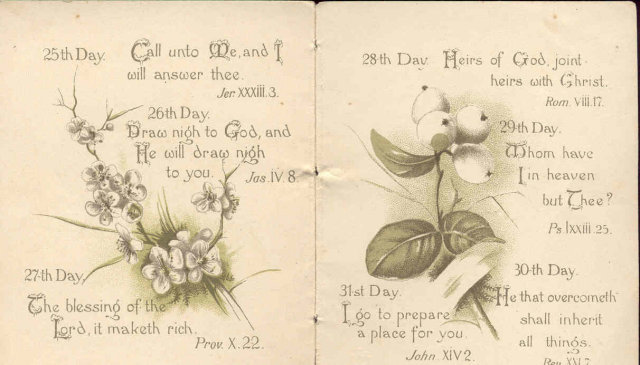 25th Day. Call unto Me, and I
will answer thee.
Jer. XXXIII. 3.
26th Day.
Draw nigh to God, and
He will draw nigh
to you. Jas. IV. 8.
27th Day,
The blessing of the
Lord, it maketh rich.
Prov. X. 22.
28th Day. Heirs of God, joint-
heirs with Christ.
Rom. VIII. 17.
29th Day.
Whom have
I in heaven
but Thee?
Ps. lxxIII. 25.
30th Day.
He that overcometh
shall inherit
all things.
Rev. XXI. 7.
31st Day.
I go to prepare
a place for you.
John XIV 2.